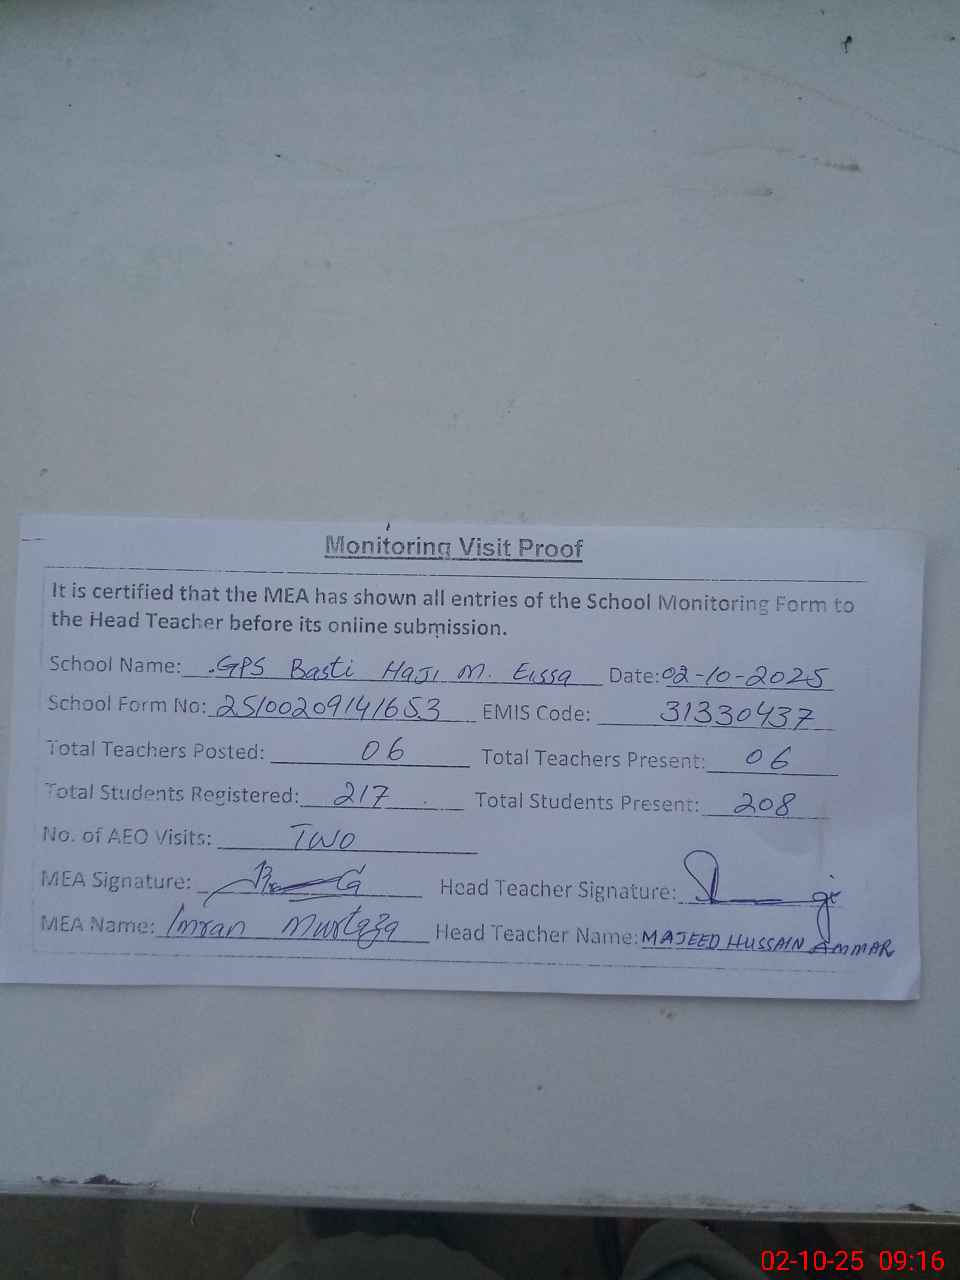 Monitoring Visit Proof
It is certified that the MEA has shown all entries of the School Monitoring Form to
the Head Teacher before its online submission.
School Name: GPS Basti Haji M. Eissa Date: 02-10-2025
School Form No: 25100209141653 EMIS Code: 31330437
Total Teachers Posted: 06 Total Teachers Present: 06
Total Students Registered: 217 Total Students Present: 208
No. of AEO Visits: Two
MEA Signature: Head Teacher Signature:
MEA Name: Imran Murtaza Head Teacher Name: MAJEED HUSSAIN AMMAR
02-10-25 09:16